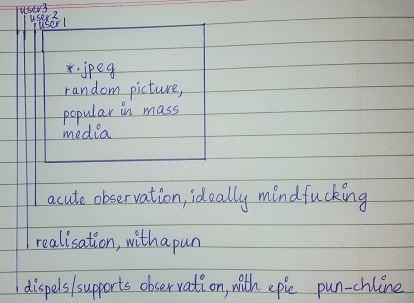 user3
user2
user1
*.jpeg
random picture,
popular in mass
media
acute observation, ideally mindfucking
realisation, with a pun
dispels/supports observation, with epic pun-chline